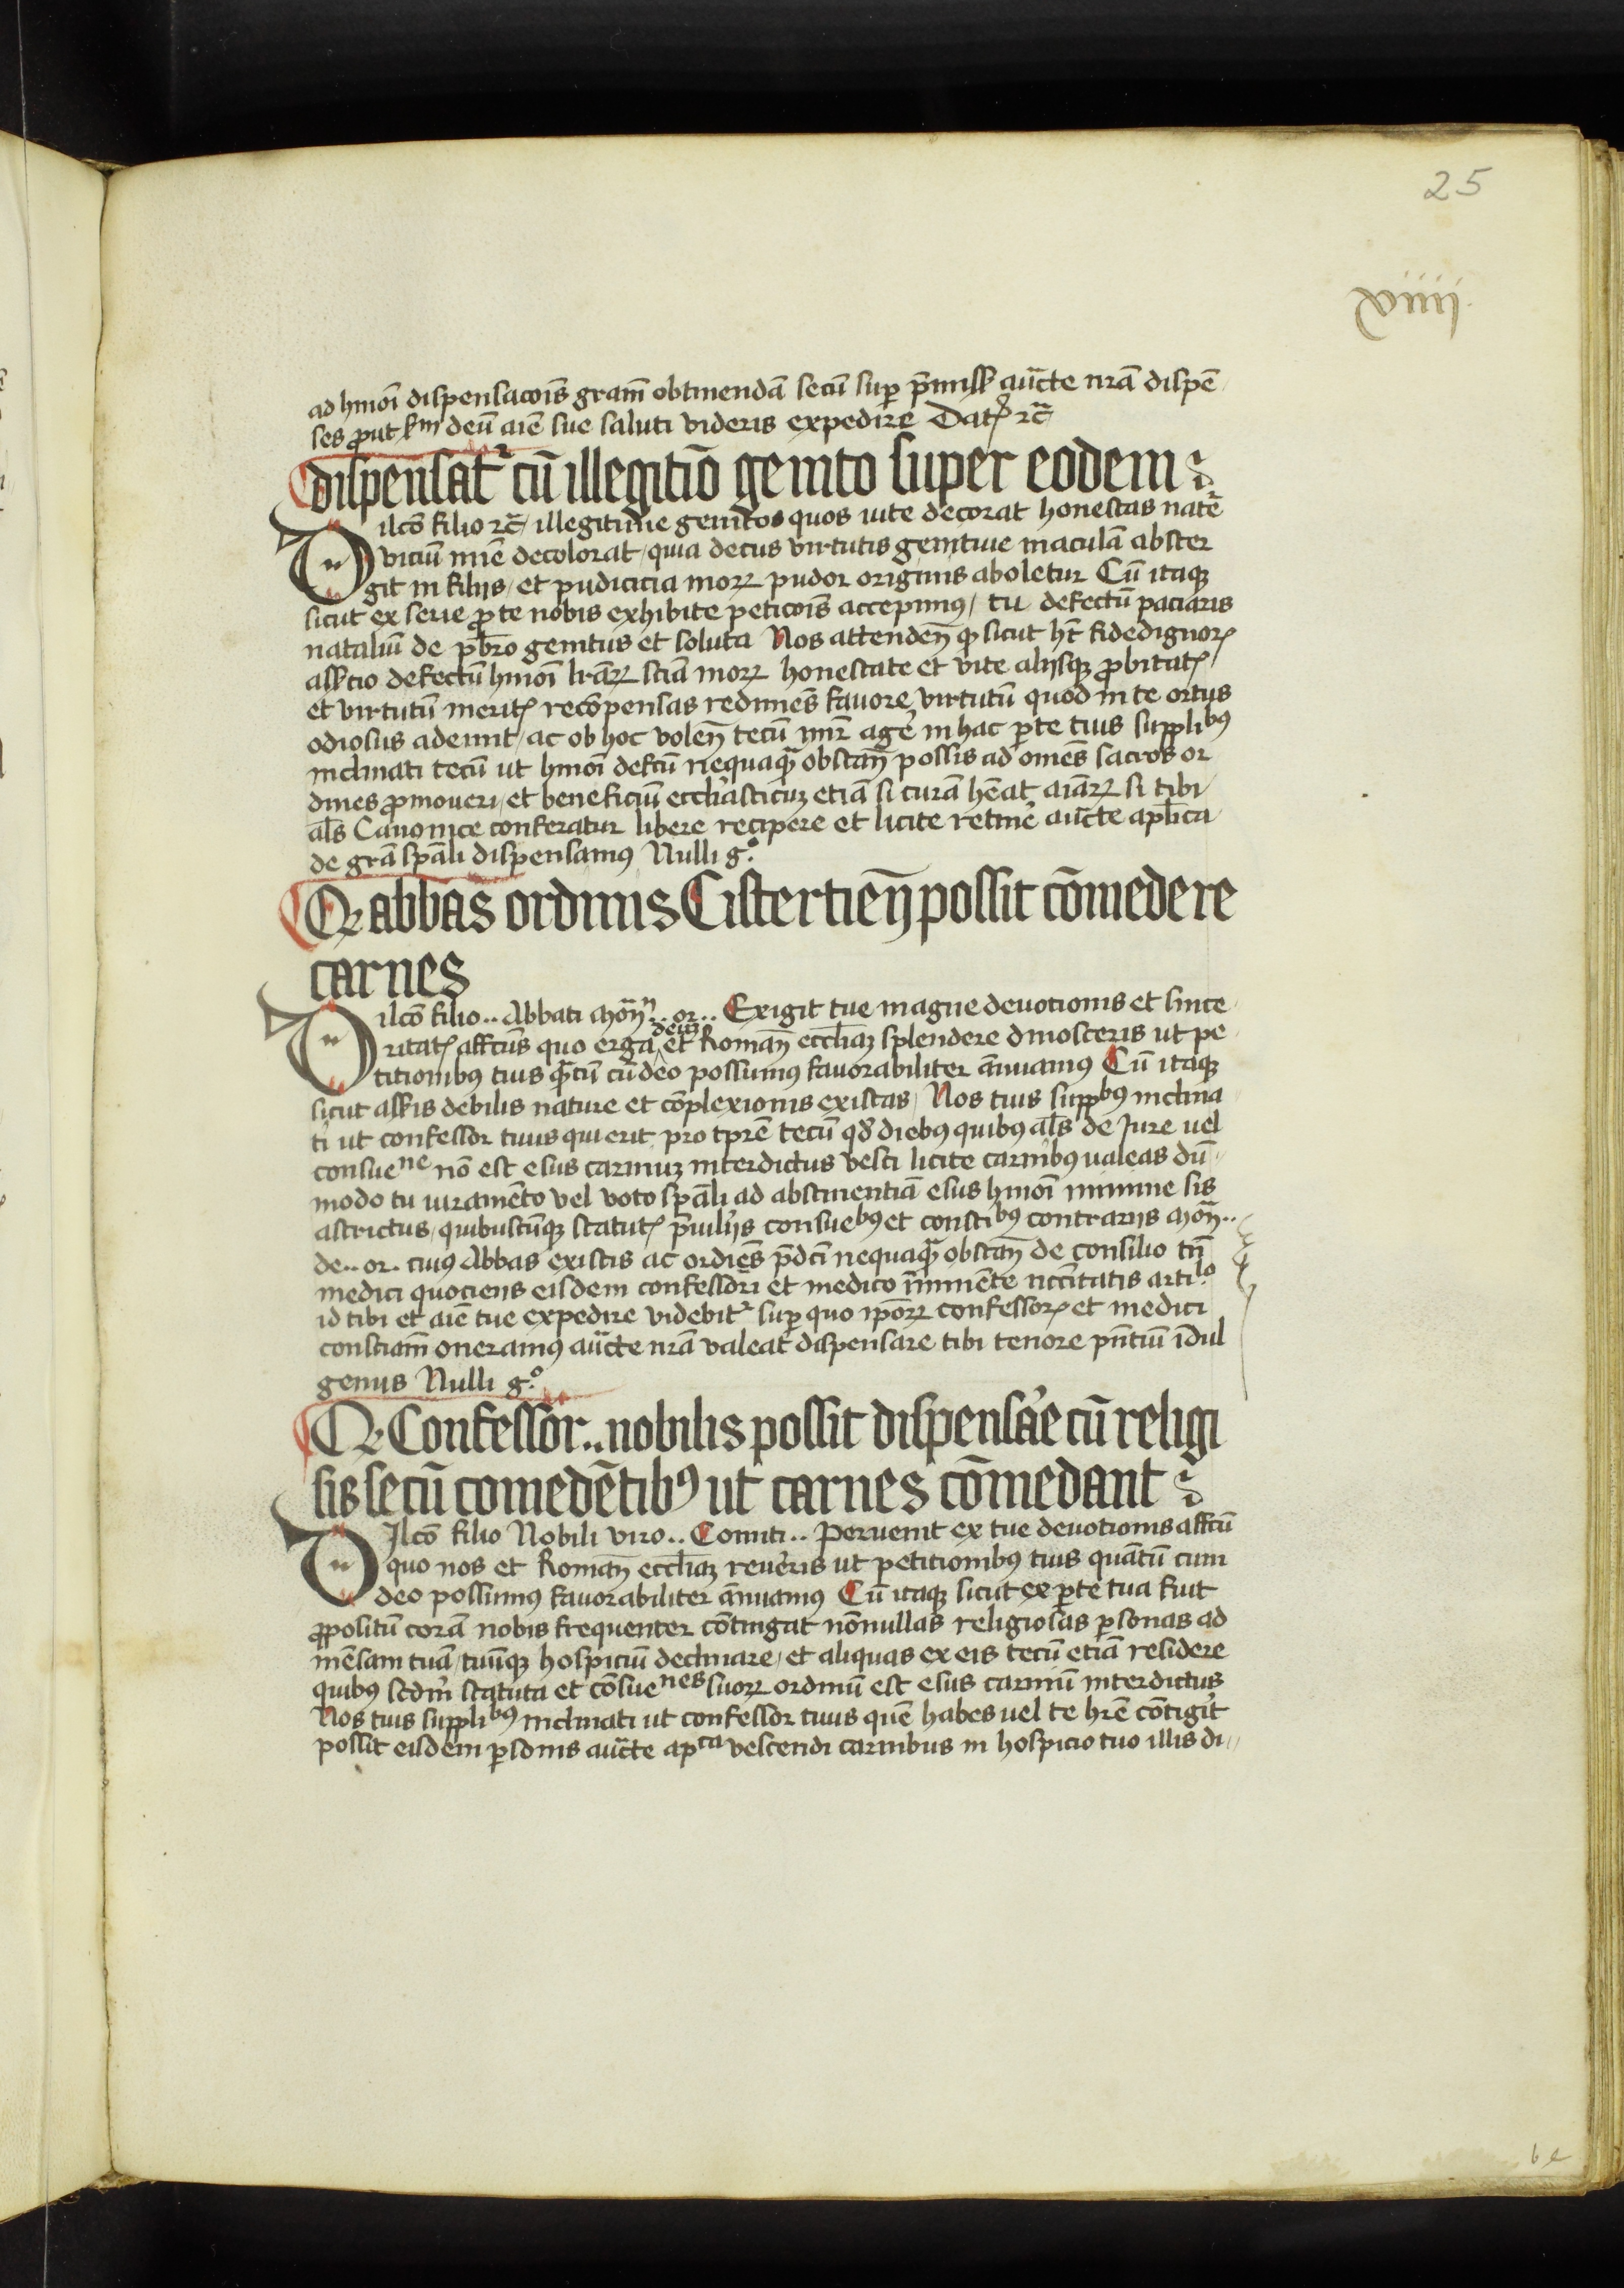 25
xviiij.
ad hmoı̄ dispensacōis gram̄ obtinendā secū suꝑ p̄miss̄ auc̄te nrā dispē
ses ꝓut scdm deū aīe sue saluti videris expedire Datꝭ ⁊c̄
dispensatᷣ cū illegitīo genito super eodem
Dilc̄o filio ⁊c̄ / illegitime genitos quos uite decorat honestas nature
vicium mīe decolorat / quia decus virtutis genitiue maculā abster
git in filijs / et pudicicia moꝝ pudor originis aboletur Cū itaqꝫ
sicut ex serie ꝓ te nobis exhibite peticōis accepimꝰ / tu defectū paciaris
nataliū de pb̄ro genitus et soluta Nos attendeñ ꝙ sicut ht̄ fidedignoꝝ
ass̄tio defectū hmoı̄ lrāꝝ sciā moꝝ honestate et vite alijsqꝫ ꝓbitatꝭ
et virtutū meritꝭ recōpensas redimēs fauore virtutū quod in te ortus
odiosus ademit / ac ob hoc voleñ tecū mīr agē in hac ꝑte tuis suppliᵇꝰ
inclinati tecū ut hmoı̄ defcū nequaꝗ̄ obstañ possis ad omēs sacros or
dines ꝓmoueri / et beneficiū eccl̄iasticuꝫ etiā si curā hēat aīaꝝ si tibi
als̄ Canonice conferatur libere recipere et licite retinē auc̄te apl̄ica
de grā spāli dispensamꝰ Nulli gͦ.
Qꝫ abbas ordinis Cistertieñ possit cōmedere
carnes
Dilc̄o filio .. Abbati Moñ .. or .. Exigit tue magne deuotionis et since
ritatꝭ affcūs quo erga deū et Romañ eccl̄iaꝫ splendere dinosceris ut pe
titionibꝰ tuis ꝗ̄tū cū deo possumus fauorabiliter ānuamꝰ Cū itaqꝫ
sicut asseris debilis nature et cōplexionis existas / Nos tuis suppᵇꝰ inclina
ti ut confessor tuus qui erit pro tp̄re tecū qd̄ diebꝰ quibꝰ als̄ de Jure uel
consueⁿᵉ nō est esus carniuꝫ interdictus vesci licite carnibꝰ ualeas dū
modo tu iuramēto vel voto spāli ad abstinentiā esus hmoı̄ minime sis
astrictus / quibuscūqꝫ statutꝭ p̄uilijs consueᵇꝰ et constiᵇꝰ contrarijs Moñ ..
de .. or .. cuiꝰ Abbas existis ac ordiēs p̄dc̄i nequaꝗ̄ obstañ de consilio tn̄
medici quociens eisdem confessori et medico īminēte nc̄citatis artiˡᵒ
id tibi et aīe tue expedire videbitᷣ suꝑ quo ip̄oꝝ confessorꝭ et medici
consciam̄ oneramꝰ auc̄te nrā valeat dispensare tibi tenore pn̄tiū īdul
gemus Nulli gͦ.
Qꝫ Confessor .. nobilis possit dispensāe cū religi
sis secū comedētibꝰ ut carnes cōmedant
Dilc̄o filio Nobili viro .. Comiti .. Peruenit ex tue deuotionis affcū
quo nos et Romañ eccl̄iaꝫ reuēris ut petitionibꝰ tuis quātū cum
deo possumus fauorabiliter ānuamꝰ Cū itaqꝫ sicut ex ꝑte tua fuit
ꝓpositū corā nobis frequenter cōtingat nōnullas religiosas ꝑsonas ad
mēsam tuā / tuūqꝫ hospiciū declinare / et aliquas ex eis tecū etiā residere
quibꝰ scdm̄ statuta et cōsueⁿᵉˢ suoꝝ ordinū est esus carniū interdictus
Nos tuis suppliᵇꝰ inclinati ut confessor tuus quē habes uel te hrē cōtigit
possit eisdem ꝑsonis auc̄te apᶜᵃ vescendi carnibus in hospicio tuo illis di